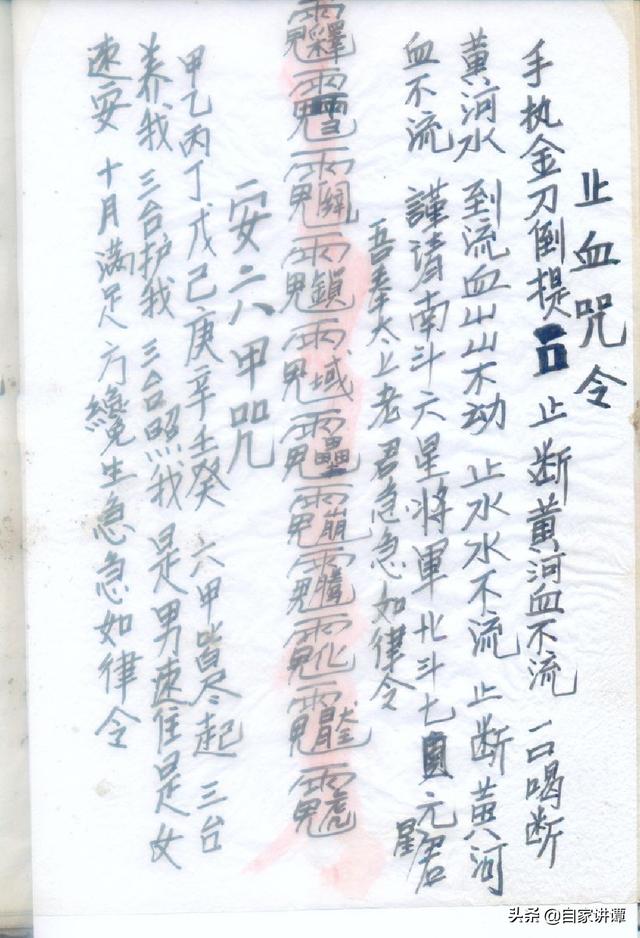 止血咒令
手执金刀倒提 止断黄河血不流 一口喝断
黄河水 到流血山山不动 止水水不流 止断黄河
血不流 謹请南斗六星将軍北斗七星元君
吾奉太上老君急急如律令
安六甲咒
甲乙丙丁戊己庚辛壬癸 六甲皆尽起 三台
养我 三台护我 三台照我 是男速住是女
速安 十月满足方纔生急急如律令
头条 @自家讲谭